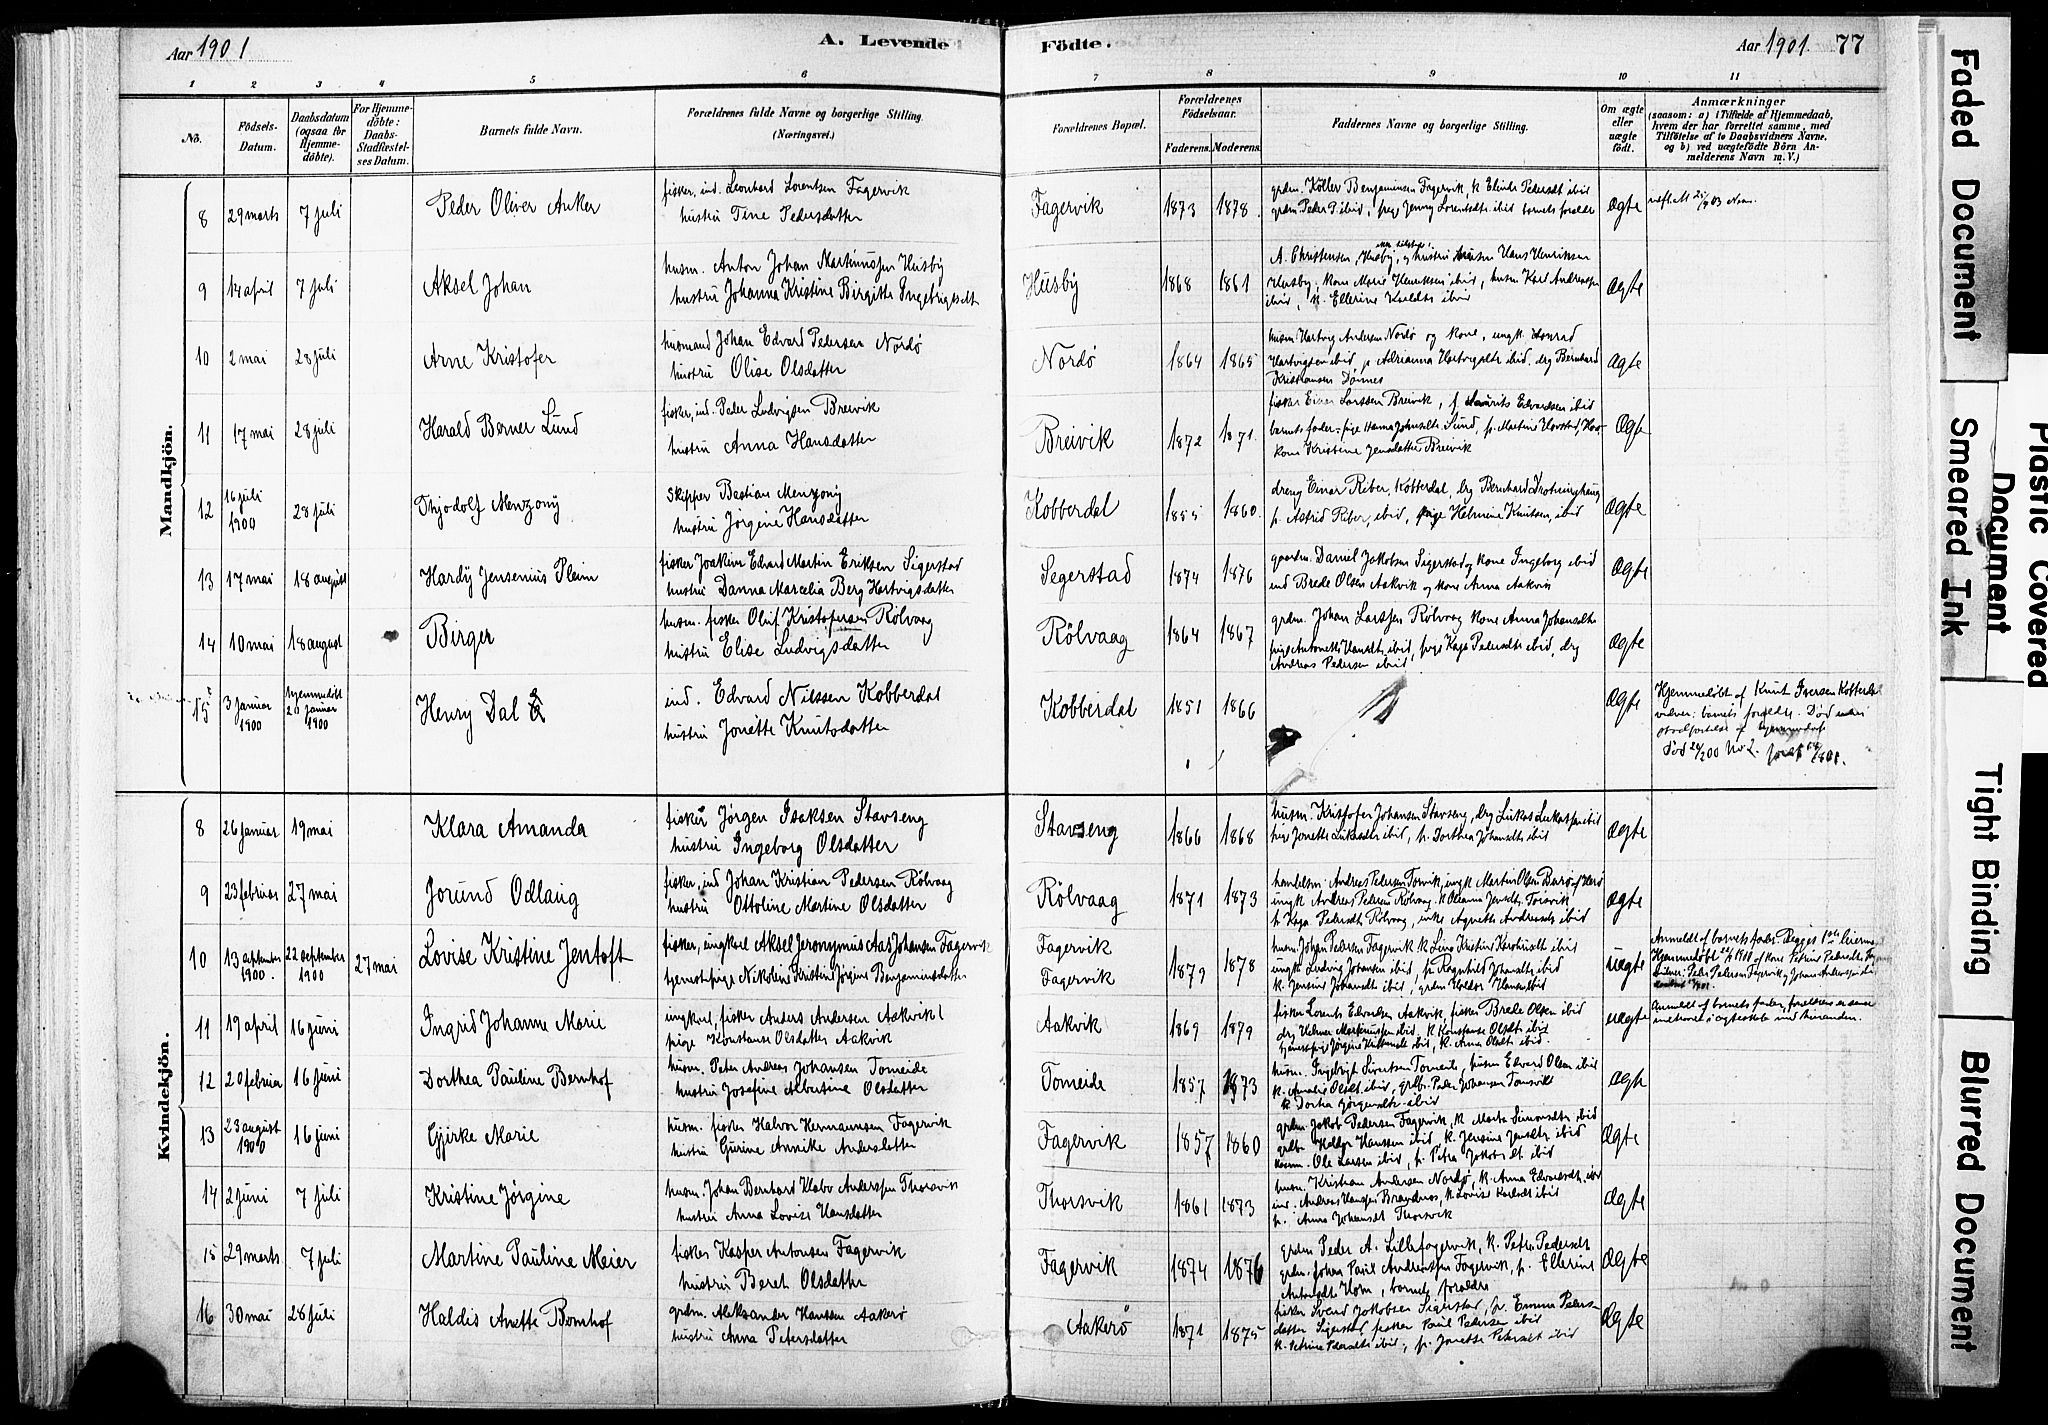 Aar 1901
A. Levende
Födte.
Aar 1901. 77
1 2 3 4 5 6 7 8 9 10 11
No.
Födsels-Datum.
Daabsdatum (ogsaa for Hjemme-döbte).
For Hjemme-döbte: Daabs-Stadfæstel-ses Datum.
Barnets fulde Navn.
Forældrenes fulde Navne og borgerlige Stilling. (Næringsvei.)
Forældrenes Bopæl.
Forældrenes Födselsaar.
Faderens. Moderens.
Faddernes Navne og borgerlige Stilling.
Om ægte eller uægte födt.
Anmærkninger
(saasom: a) i Tilfælde af Hjemmedaab,
hvem der har forrettet samme, med
Tilföielse af to Daabsvidners Navne,
og b) ved uægtefödte Börn An-
melderens Navn m. V.)
Mandkjön.
8 29 marts 7 juli Peder Oliver Anker
fisker, ind. Leonhard Lorentsen Fagervik
hustru Tine Pedersdatter
Fagervik 1873 1878.
grdm. Köller Benjaminsen Fagervik, k. Elinde Pedersdt ibid
grdm. Peder P. ibid, pige Jenny Lorentsdtr ibid barnets forældre
Ægte
9 14 april 7 juli Aksel Johan
husm. Anton Johan Markussen Husby
hustru Johanna Kristine Birgitte Ingebrigtsdt
Husby 1868 1861
A. Christensen, Husby, og hustru Hans Henriksen
Husby, kone Marie Henriksen ibid, husm Karl Andreassen
ibid, k. Ellerine ibid
Ægte
10 2 mai 28 juli Arne Kristofer
husmand Johan Edvard Pedersen Nordø
hustru Olise Olsdatter
Nordö 1864 1865
husm. Hartvig Andersen Nordö og kone, ungk. Konrad
Hartvigsen ibid p Adrianna Hartvigsdtr ibid. drg Bernhard
Kristiansen Dönnes
Ægte
11 17 mai 28 juli Harald Berner Lund
fisker, ind. Peder Ludvigsen Breivik
hustru Anna Hansdatter
Breivik 1872 1871.
fisker Einar Larssen Breivik, f. Laurits Edvardsen ibid
barnets fader, pige Hanna Johnsdtr Sund, p. Martine
kone Kristine Jensdatter Breivik
Ægte
12 16 juli 1900 28 juli Thjodolf Menzony
Skipper Bastian Menzony
hustru Jörgine Hansdatter
Kobberdal 1855 1860.
dreng Einar Riber, Kobberdal, drg Bernhard
p. Astrid Riber, ibid, pige Helmine Knutsen, ibid
Ægte
13 17 mai 18 august Hardy Jensenius Pleim
fisker Joakim Edvard Martin Eriksen Sigerstad
hustru Danna Marcelia Berg Hartvigsdatter
Segerstad 1874 1876
gaardm. Daniel Jakobsen Sigerstad og kone Ingeborg ibid
ind Brede Olsen Aakvik og kone Anna Aakvik
Ægte
14 10 mai 18 august Birger
husm. fisker Oluf Kristofersen Rölvaag
hustru Elise Ludvigsdatter
Rölvaag 1864 1867
grdm. Johan Larssen Rölvaag kone Anna Johansdtr
pige Antonette Hansdtr, ibid, pige Kaja Pedersdtr ibid, drg
Andreas Pedersen ibid
Ægte
15 3 januar 1900 hjemmedöbt 20 januar 1900 Henry Dal
ind. Edvard Nilssen Kobberdal
hustru Jonette Knutsdatter
Kobberdal 1851 1866
Ægte
Hjemmedøbt af Knut Iversen Kobberdal
vidner: barnets forældre. Død uden
stadfæstelse af hjemmedaab
Kvindekjön.
8 26 januar 19 mai Klara Amanda
fisker Jørgen Isaksen Stavseng
hustru Ingeborg Olsdatter
Stavseng 1866 1868
husm. Kristofer Johansen Stavseng, drg Lukas Lukassen ibid
pige Jonette Lukasdtr ibid, p. Dorthea Johansdtr ibid
Ægte
9 23 februar 27 mai Jorund Odlaug
fisker, ind Johan Kristian Pedersen Rölvaag
hustru Ottoline Martine Olsdatter
Rölvaag 1871 1873
handelsm. Andreas Pedersen Torsvik, ungk Martin Olsen Barö af Herö
ungk Andreas Pedersen Rölvaag k Oleanna Jensdtr Torsvik
p. Kaja Pedersdtr Rölvaag, enke Agnette Andreasdtr ibid
Ægte
10 13 september 1900. 22 september 1900 27 mai Lovise Kristine Jentoft
fisker, ungkarl Aksel Jeronymus Aas Johansen Fagervik
tjenestepige Nikoline Kristine Jörgine Benjaminsdatter
Fagervik
Fagervik 1879 1878
husm. Johan Pedersen Fagervik k Lina Kristine ibid
ungk Ludvig Johansen ibid, p. Ragnhild Johansdtr ibid
k. Jensine Johansdtr ibid, grdm Haldor Hansen ibid
uægte
Anmeldt af barnets fader. Begges 1ste leierm.
11 19 april 16 juni Ingrid Johanne Marie
ungkarl, fisker Anders Andersen Aakvik
pige Konstanse Olsdatter Aakvik
Aakvik 1869 1879
fisker Lorents Edvardsen Aakvik, fisker Brede Olsen ibid
drg Hilmer Markussen ibid, k Konstanse Olsdtr ibid
k. Anna Olsdtr ibid.
uægte
Anmeldt af barnets fader, forældrene er senere
indtraadt i ægteskab med hinanden.
12 20 februar 16 juni Dorthea Pauline Bernhof
husm. Peter Andreas Johansen Tomeide
hustru Josefine Albertine Olsdatter
Tomeide 1857 1873
husm. Ingebrigt Sivertsen Tomeide, husm Edvard Olsen ibid
k. Amalie Olsdt ibid, grdbr. Peder Johansen Tomsvik
k Dorthea Jörgensdtr ibid
Ægte
13 23 august 1900 16 juni Gjirke Marie
husm. fisker Halvor Hermannsen Fagervik
hustru Gurine Annike Andersdatter
Fagervik 1857 1860
grdm. Jakob Pedersen Fagervik, k. Marta Simonsdtr ibid
grdbr Haldor Hanssen ibid, k. Jensine Jensdtr ibid
husm. Ole Larsen ibid, p. Petra Jakobsdt ibid
Ægte
14 2 juni 7 juli Kristine Jörgine
husm. Johan Bernhard Klabo Anderssen Thorsvik
hustru Anna Lovise Hansdatter
Thorsvik 1861 1873
husm. Kristian Andersen Nordø, k. Anna Edvardsdtr ibid
ind. Andreas Hanssen Brandnes, k Lovise Karlsdt ibid
p. Anna Johansdt Thorsvik
Ægte
15 29 marts 7 juli Martine Pauline Meier
fisker Kasper Antonsen Fagervik
hustru Beret Olsdatter
Fagervik 1874 1876
grdm Peder A. Lillefagervik, k. Petra Pedersdt
grdm. Johan Paul Andreassen Fagervik, p. Ellerine
Antonsdtr Horn, barnets forældre
Ægte
16 30 mai 28 juli Haldis Anette Bernhof
grdm. Aleksander Hansen Aakerö
hustru Anna Petersdatter
Aakerö 1871 1875
fisker Svend Jakobsen Sigerstad, p. Emma Peders-
datter Sigerstad, fisker Paul Pedersen ibid
k. Petrine Pedersdtr ibid, p. Jonette Pedersdt ibid
Ægte
Faded Document
Smeared Ink
Plastic Covered Document
Tight Binding
Blurred Document